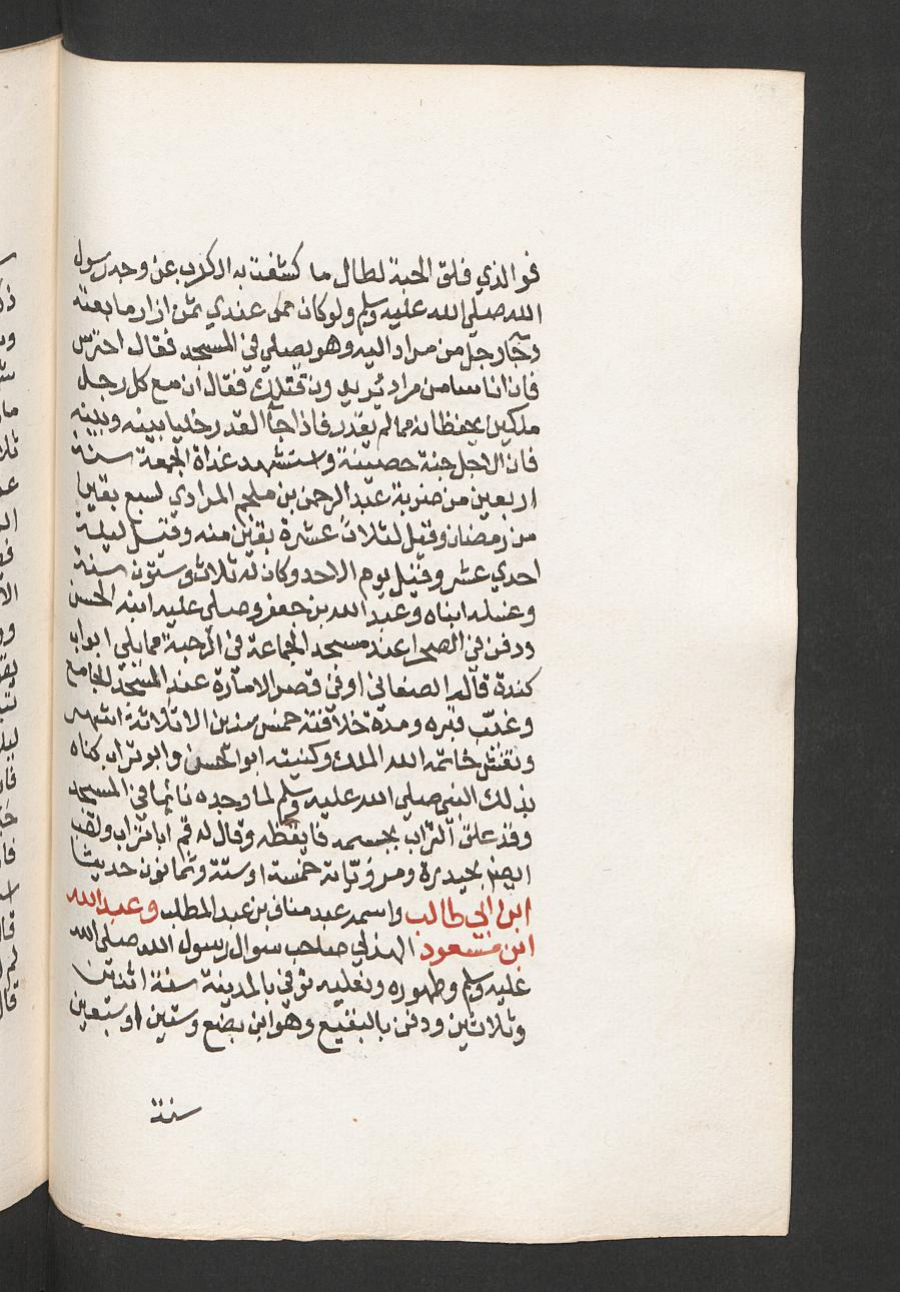 فوالذي فلق الحبة لطال ما كشفت به الكرب عن وجه رسول
الله صلي الله عليه وسلم ولو كان عندي ثمن ازار ما بعته
وجآ رجل من مراد اليه وهو يصلي في المسجد فقال احترس
فان اناسا من مراد يريدون قتلك فقال ان مع كل رجل
ملكين يحفظانه مما لم يقدر فاذا جآ القدر خليا بينه وبينه
فان الاجل جنة حصينة واستشهد غداة الجمعة سنة
اربعين من ضربة عبد الرحمن بن ملجم المرادي لسبع بقين
من رمضان وقيل لثلاث عشرة بقين منه وقيل ليلة
احدي عشر وقيل يوم الاحد وكان له ثلاث وستون سنة
وغسله ابناه وعبد الله بن جعفر وصلي عليه ابنه الحسن
ودفن في الصحرا عند مسجد الجماعة في الرحبة مما يلي ابواب
كندة قاله الصغاني او في قصر الامارة عند المسجد الجامع
وغيب قبره ومدة خلافته خمس سنين الا ثلاثة اشهر
ونقش خاتمه الله الملك وكنيته ابو الحسن وابو تراب كناه
بذلك النبي صلي الله عليه وسلم لما وجده نائما في المسجد
وقد علق التراب بجسمه فايقظه وقال له قم ابا تراب ولقب
ايضا بحيدرة ومروياته خمسة او ستة وثمانون حديثا
ابن ابي طالب واسمه عبد مناف بن عبد المطلب وعبد الله
ابن مسعود الهذلي صاحب سوال رسول الله صلي الله
عليه وسلم وطهوره ونعليه توفي بالمدينة سنة اثنتين
وثلاثين ودفن بالبقيع وهو ابن بضع وستين او سبعين
سنة